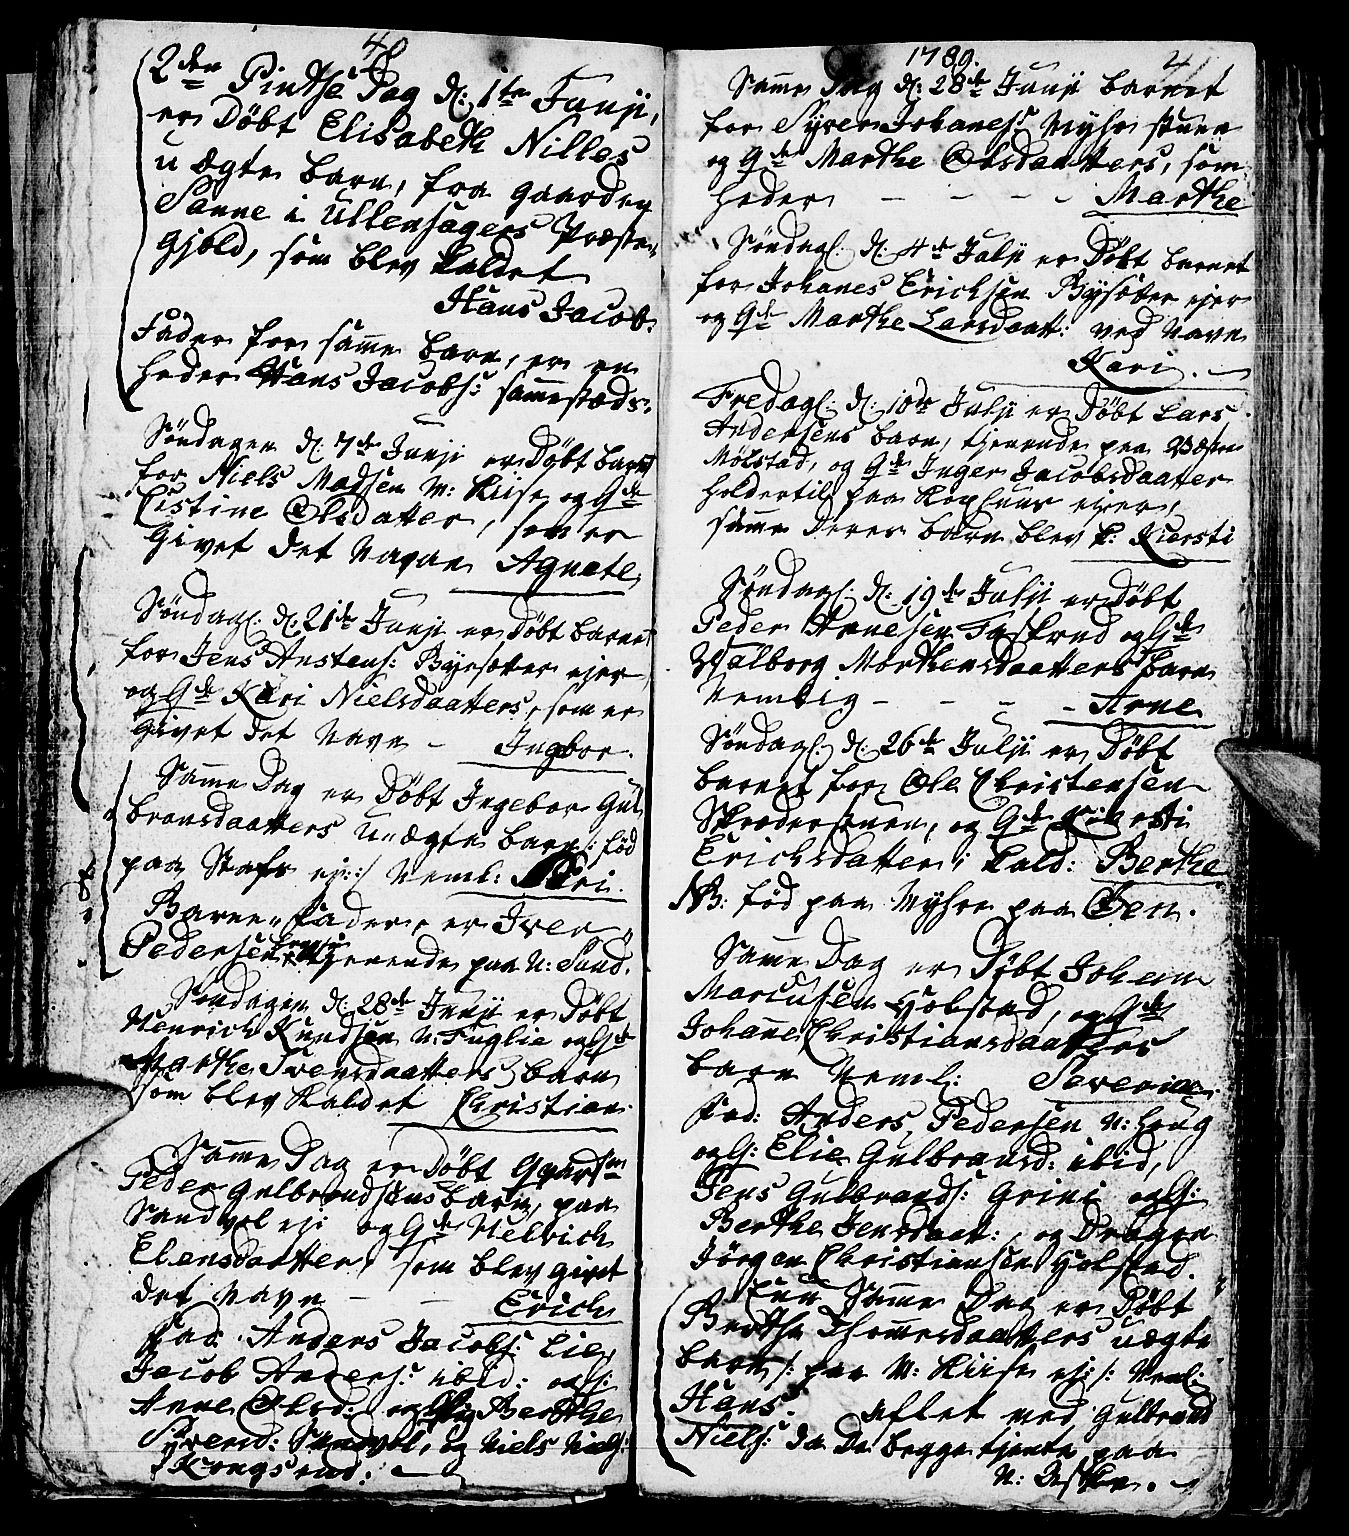 40
2den Pintse Dag d: 1te Junji,
er Døbt Elisabeth Nilles
u ægte barn, fra gaarden
Sanne i Ullensagers Præste-
gjeld, som blev kaldet
Hans Jacob.
Fader for samme barn, er en
heder Hans Jacobs: sammestæds.
Søndagen d: 7de Junji er Døbt barnet
for Niels Madsen N: Kiise og Qde
Cistine Olsdatter, som er
givet det Navn Agnete,
Søndagl: d: 21de Junji er Døbt barnet
for Jens Anstens: Byesæter ejer
og Qde Kari Nielsdaatters, som er
givet det Navn - Ingbor.
Samme Dag er Døbt Ingebor Gul
bransdaatters u-ægte barn /: fød
paa ej: :/ Neml: Kari.
Barne,, fader, er Iver
Pedersen tjenende paa N: Sund.
Søndagen d: 28de Junji er Døbt
Henrich Knudsen N: Fuglie og Qde
Marthe Svensdaatters barn
som blev kaldet Christian.
Samme Dag er Døbt
Peder Gulbrandsens barn, paa
Sandvol ej: og Qde Helvich
Elensdaatter, som blev givet
det Navn - - Erich
Fad: Anders Jacobs: Lie,
Jacob Anders: ibid: og Q:
Anne Olsd: og Pig Berthe
Syversd: Sandvol, og Niels Niels:
Kongsrud:
1789. 4
Samme Dag d: 28de Junji barnet
for Syver Johanes: Myhr stuen
og Qde Marthe Olsdaatters, som
heder - - - - Marthe
Søndagl: d: 4de Julji er Døbt barnet
for Johanes Erichsen Bysæter ejer
og Qde Marthe Larsdaatt: ved Navn
Kari.
Fredagl: d: 10de Julji er Døbt Lars
Andersens barn, tjenende paa Westen
Mølstad, og Qde Inger Jacobsdaatter
holder til paa ejer,
samme Deres barn blev k: Kiersti
Søndagl: d: 19de Julji er Døbt
Peder Arnesen Taskrud og Qde
Walborg Morthensdaatters barn
Nemlig - - - - Arne
Søndagl: d: 26de Julji er Døbt
barnet for Ole Christensen
Skrederstuen, og Qde Kiersti
Erichsdatter; kald: Berthe
NB: fød paa Myhre paa Øen.
Samme Dag er Døbt Johan
Marcusen Holstad, og Qde
Johanne Christiansdaatters
barn Neml: Severine
Fad: Anders Pedersen N: Houg
og Q: Elie Gulbransd: ibid,
Jens Gulbrands: Grini og Q:
Berthe Jensdaat:, og Dragon
Jørgen Christiansen Holstad.
Enn Samme Dag er Døbt
Berthe Thommesdaatters uægte
barn /: paa N: Kiise ej: :/ Neml:
Hans. aflet ved Gulbrand
Niels: da De begge tjente paa
N: Aske.